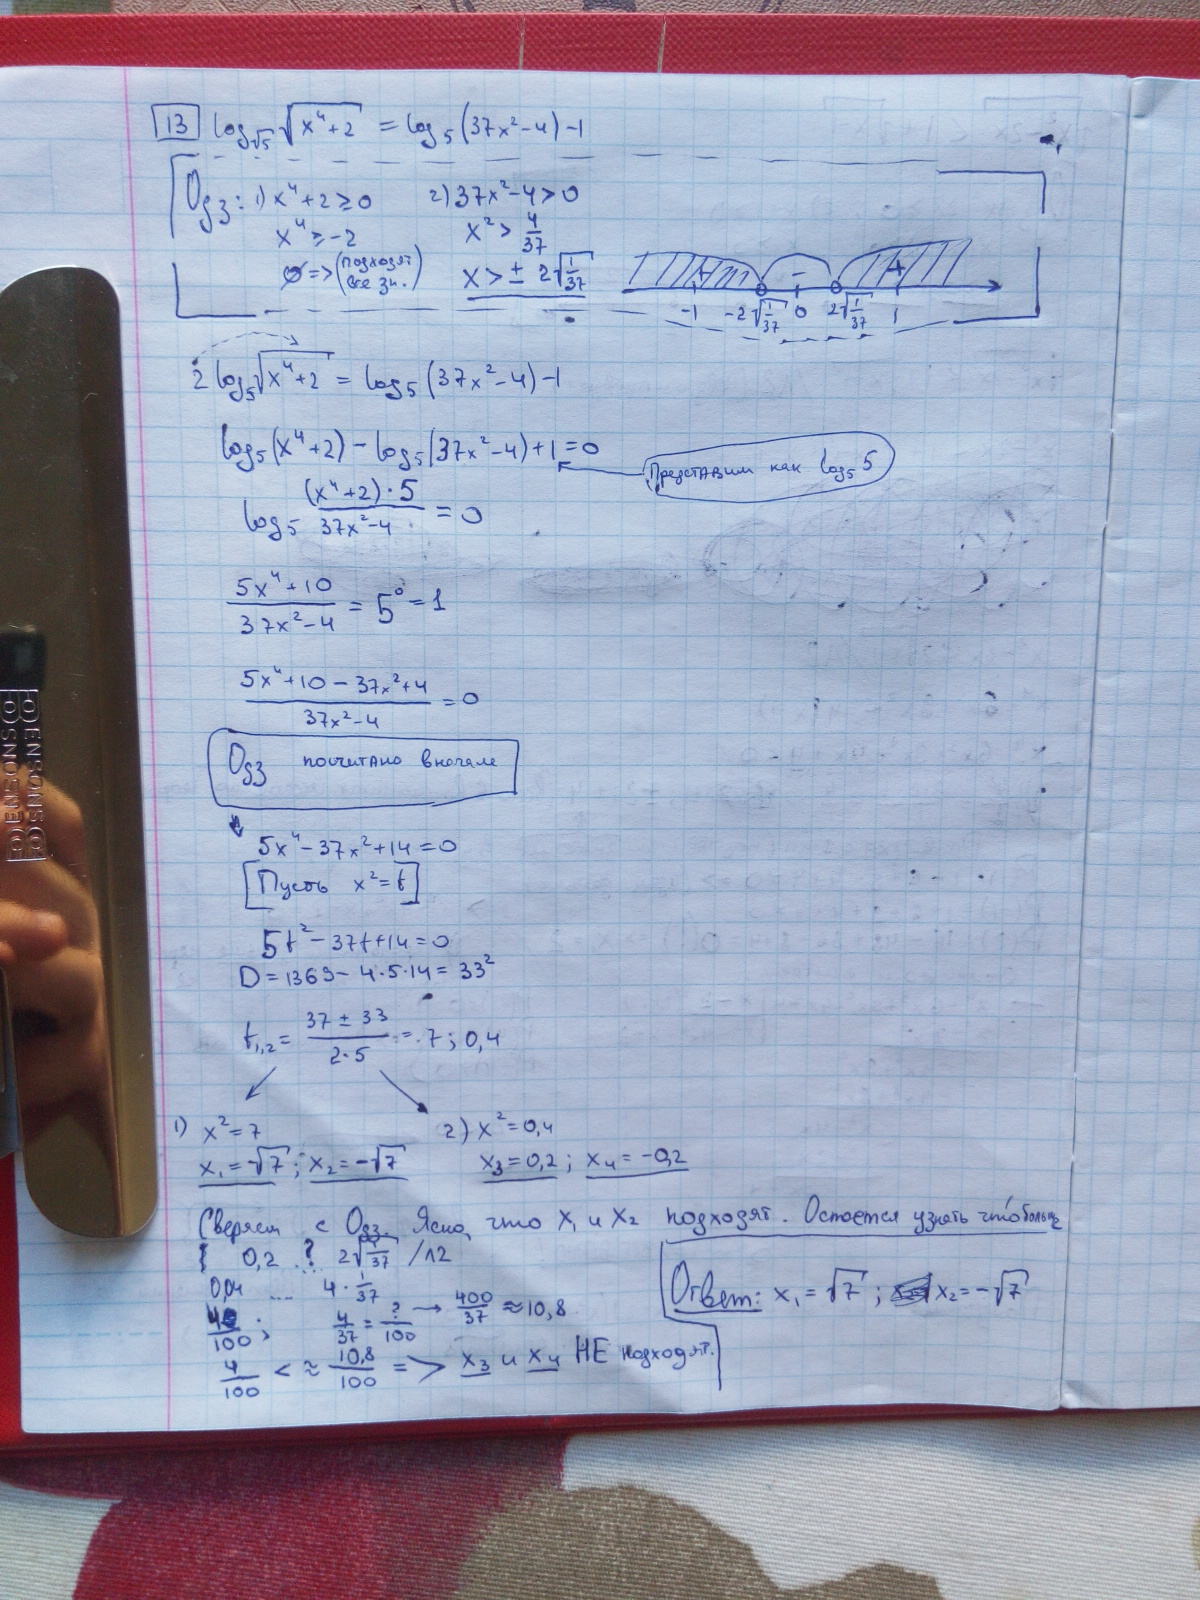 13 log_√5 √(x⁴+2) = log₅(37x²-4)-1
Одз: 1) x⁴+2≥0 2) 37x²-4>0
x⁴≥-2 x²> 4/37
∅=>(подходят все зн.) x>± 2√(1/37)
+ - +
-1 -2√(1/37) 0 2√(1/37) 1
2 log₅√(x⁴+2) = log₅(37x²-4)-1
log₅(x⁴+2) - log₅(37x²-4)+1=0
Представим как log₅5
log₅ ((x⁴+2)·5)/(37x²-4) = 0
(5x⁴+10)/(37x²-4) = 5⁰=1
(5x⁴+10-37x²+4)/(37x²-4) =0
Одз посчитано вначале
5x⁴-37x²+14=0
[Пусть x²=t]
5t²-37t+14=0
D=1369-4·5·14=33²
t₁,₂= (37±33)/(2·5) = 7; 0,4
1) x²=7 2) x²=0,4
x₁=√7; x₂=-√7 x₃=0,2; x₄=-0,2
Сверяем с Одз. Ясно, что x₁ и x₂ подходят. Остается узнать что больше
0,2 ? 2√(1/37) /^2
0,04 ... 4·1/37
4/100; 4/37 = ?/100 → 400/37 ≈10,8
4/100 < ≈ 10,8/100 => x₃ и x₄ НЕ подходят.
Ответ: x₁=√7; x₂=-√7
DENSONS
DENSONS